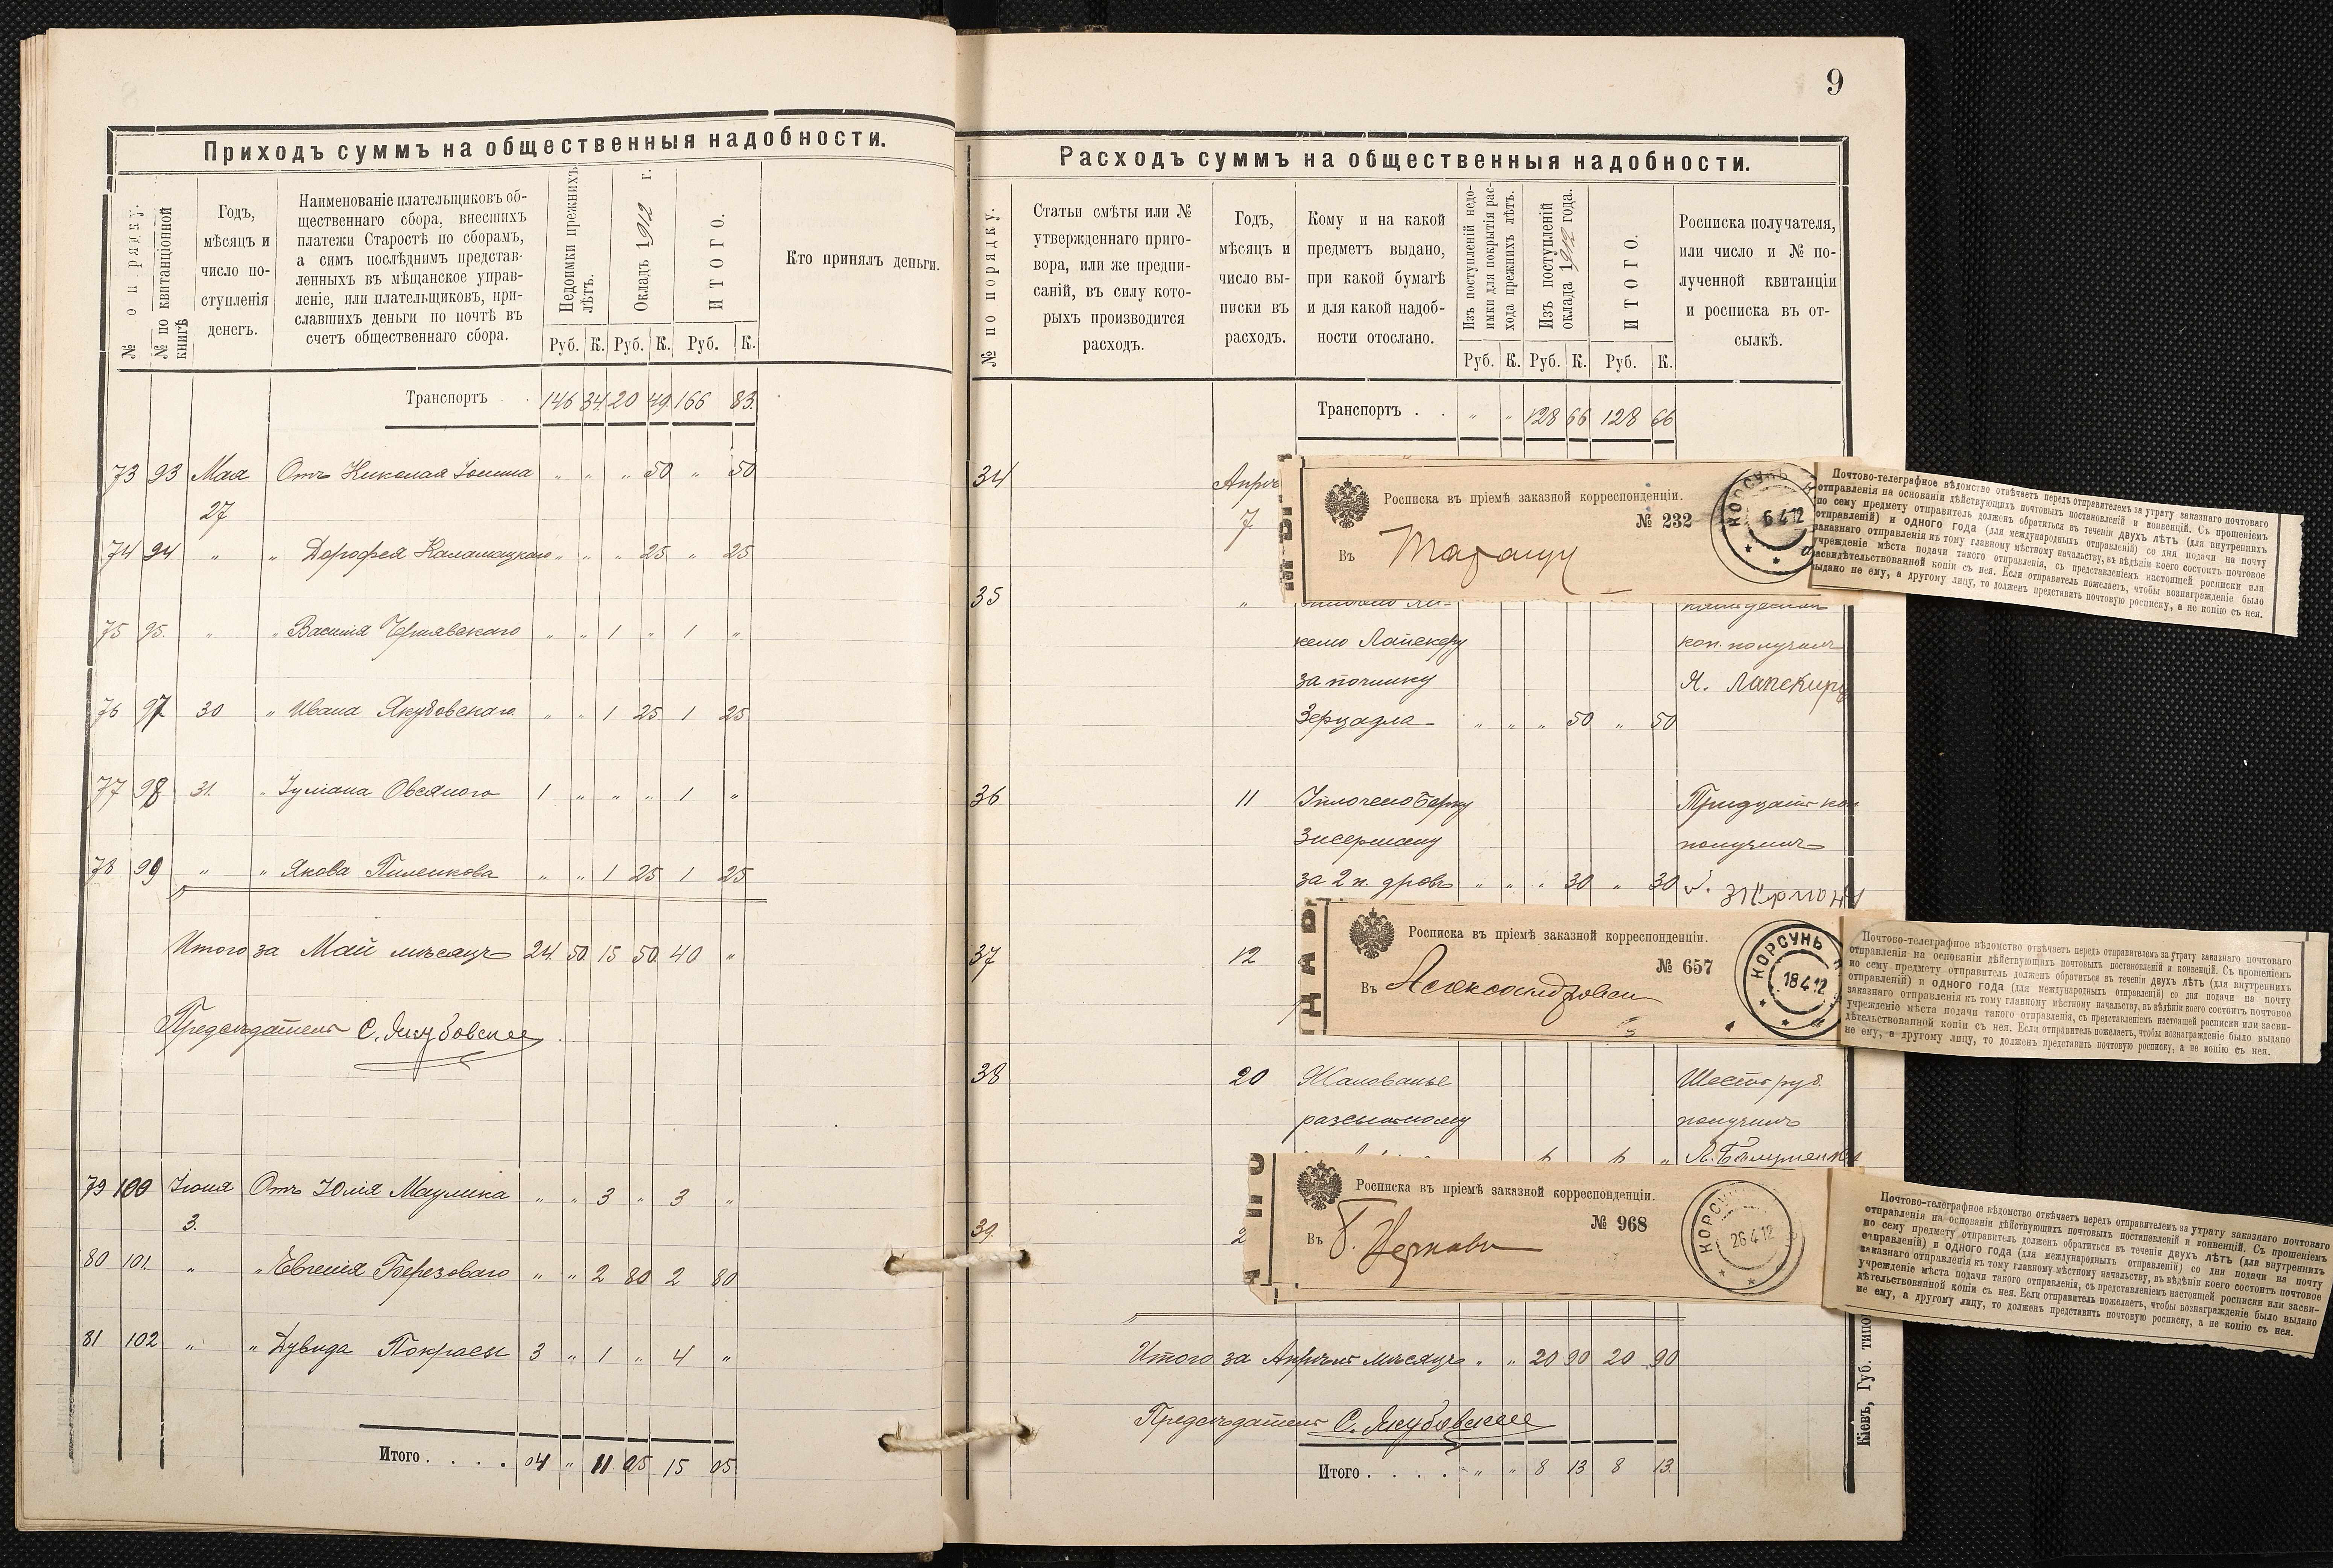 Приходъ суммъ на общественныя надобности.
№ по порядку.
№ по квитанціонной книгѣ
Годъ,
мѣсяцъ и
число по-
ступленія
денегъ.
Наименованіе плательщиковъ об-
щественнаго сбора, внесшихъ
платежи Старостѣ по сборамъ,
а симъ послѣднимъ представ-
ленныхъ въ мѣщанское управ-
леніе, или плательщиковъ, при-
славшихъ деньги по почтѣ въ
счетъ общественнаго сбора.
Недоимки прежнихъ
лѣтъ.
Окладъ 1912 г.
ИТОГО.
Кто принялъ деньги.
Руб. К. Руб. К. Руб. К.
Транспортъ . . 146 34 20 49 166 83
73 93 Мая Отъ Николая " " " 50 " 50
27
74 94 " " Дорофея " " " 25 " 25
75 95. " " Василія Чернявскаго " " 1 " 1 "
76 97 30 " Ивана Якубовскаго " " 1 25 1 25
77 98 31. " Іуліана Овсяного 1 " " " 1 "
78 99 " " Якова Пиленкова " " 1 25 1 25
Итого за Май мѣсяцъ 24 50 15 50 40 "
Предсѣдатель С. Якубовскій
79 100 Іюня Отъ Юлія " " 3 " 3 "
3.
80 101. " " Евгенія Березоваго " " 2 80 2 80
81 102 " " Дувида Покрасы 3 " 1 " 4 "
Итого . . . . 04 " 11 05 15 05
9
Расходъ суммъ на общественныя надобности.
№ по порядку.
Статьи смѣты или №
утвержденнаго приго-
вора, или же предпи-
саній, въ силу кото-
рыхъ производится
расходъ.
Годъ,
мѣсяцъ и
число вы-
писки въ
расходъ.
Кому и на какой
предметъ выдано,
при какой бумагѣ
и для какой надоб-
ности отослано.
Изъ поступленій недо-
имки для покрытія рас-
хода прежнихъ лѣтъ.
Изъ поступленій
оклада 1912 года.
ИТОГО.
Росписка получателя,
или число и № по-
лученной квитанціи
и росписка въ от-
сылкѣ.
Руб. К. Руб. К. Руб. К.
Транспортъ . . " " 128 66 128 66
34 Апрѣ
7
Росписка въ пріемѣ заказной корреспонденціи.
№ 232
Въ Таращу
КОРСУНЬ
6 4 12
Почтово-телеграфное вѣдомство отвѣчаетъ передъ отправителемъ за утрату заказнаго почтоваго
отправленія на основаніи дѣйствующихъ почтовыхъ постановленій и конвенцій. Съ прошеніемъ
по сему предмету отправитель долженъ обратиться въ теченіи двухъ лѣтъ (для внутреннихъ
отправленій) и одного года (для международныхъ отправленій) со дня подачи на почту
заказнаго отправленія къ тому главному мѣстному начальству, въ вѣдѣніи коего состоитъ почтовое
учрежденіе мѣста подачи такого отправленія, съ представленіемъ настоящей росписки или
засвидѣтельствованной копіи съ нея. Если отправитель пожелаетъ, чтобы вознагражденіе было
выдано не ему, а другому лицу, то долженъ представить почтовую росписку, а не копію съ нея.
35 "
келю Лапекеру коп. получилъ
за починку Я. Лапекиръ
Зерцадла " " " 50 " 50
36 11 Уплочено Берку Тридцать коп
Зисерману получилъ
за 2 п. дровъ " " " 30 " 30
37 12
Росписка въ пріемѣ заказной корреспонденціи.
№ 657
Въ Александровск
КОРСУНЬ
18 4 12
Почтово-телеграфное вѣдомство отвѣчаетъ передъ отправителемъ за утрату заказнаго почтоваго
отправленія на основаніи дѣйствующихъ почтовыхъ постановленій и конвенцій. Съ прошеніемъ
по сему предмету отправитель долженъ обратиться въ теченіи двухъ лѣтъ (для внутреннихъ
отправленій) и одного года (для международныхъ отправленій) со дня подачи на почту
заказнаго отправленія къ тому главному мѣстному начальству, въ вѣдѣніи коего состоитъ почтовое
учрежденіе мѣста подачи такого отправленія, съ представленіемъ настоящей росписки или засви-
дѣтельствованной копіи съ нея. Если отправитель пожелаетъ, чтобы вознагражденіе было выдано
не ему, а другому лицу, то долженъ представить почтовую росписку, а не копію съ нея.
38 20 Жалованье Шесть руб.
разсыльному получилъ
39.
2
Росписка въ пріемѣ заказной корреспонденціи.
№ 968
Въ Б. Церковь
КОРСУНЬ
26 4 12
Почтово-телеграфное вѣдомство отвѣчаетъ передъ отправителемъ за утрату заказнаго почтоваго
отправленія на основаніи дѣйствующихъ почтовыхъ постановленій и конвенцій. Съ прошеніемъ
по сему предмету отправитель долженъ обратиться въ теченіи двухъ лѣтъ (для внутреннихъ
отправленій) и одного года (для международныхъ отправленій) со дня подачи на почту
заказнаго отправленія къ тому главному мѣстному начальству, въ вѣдѣніи коего состоитъ почтовое
учрежденіе мѣста подачи такого отправленія, съ представленіемъ настоящей росписки или засви-
дѣтельствованной копіи съ нея. Если отправитель пожелаетъ, чтобы вознагражденіе было выдано
не ему, а другому лицу, то долженъ представить почтовую росписку, а не копію съ нея.
Итого за Апрѣль мѣсяцъ " " 20 90 20 90
Предсѣдатель С. Якубовскій
Итого . . . . " " 8 13 8 13.
Кіевъ, Губ. типо